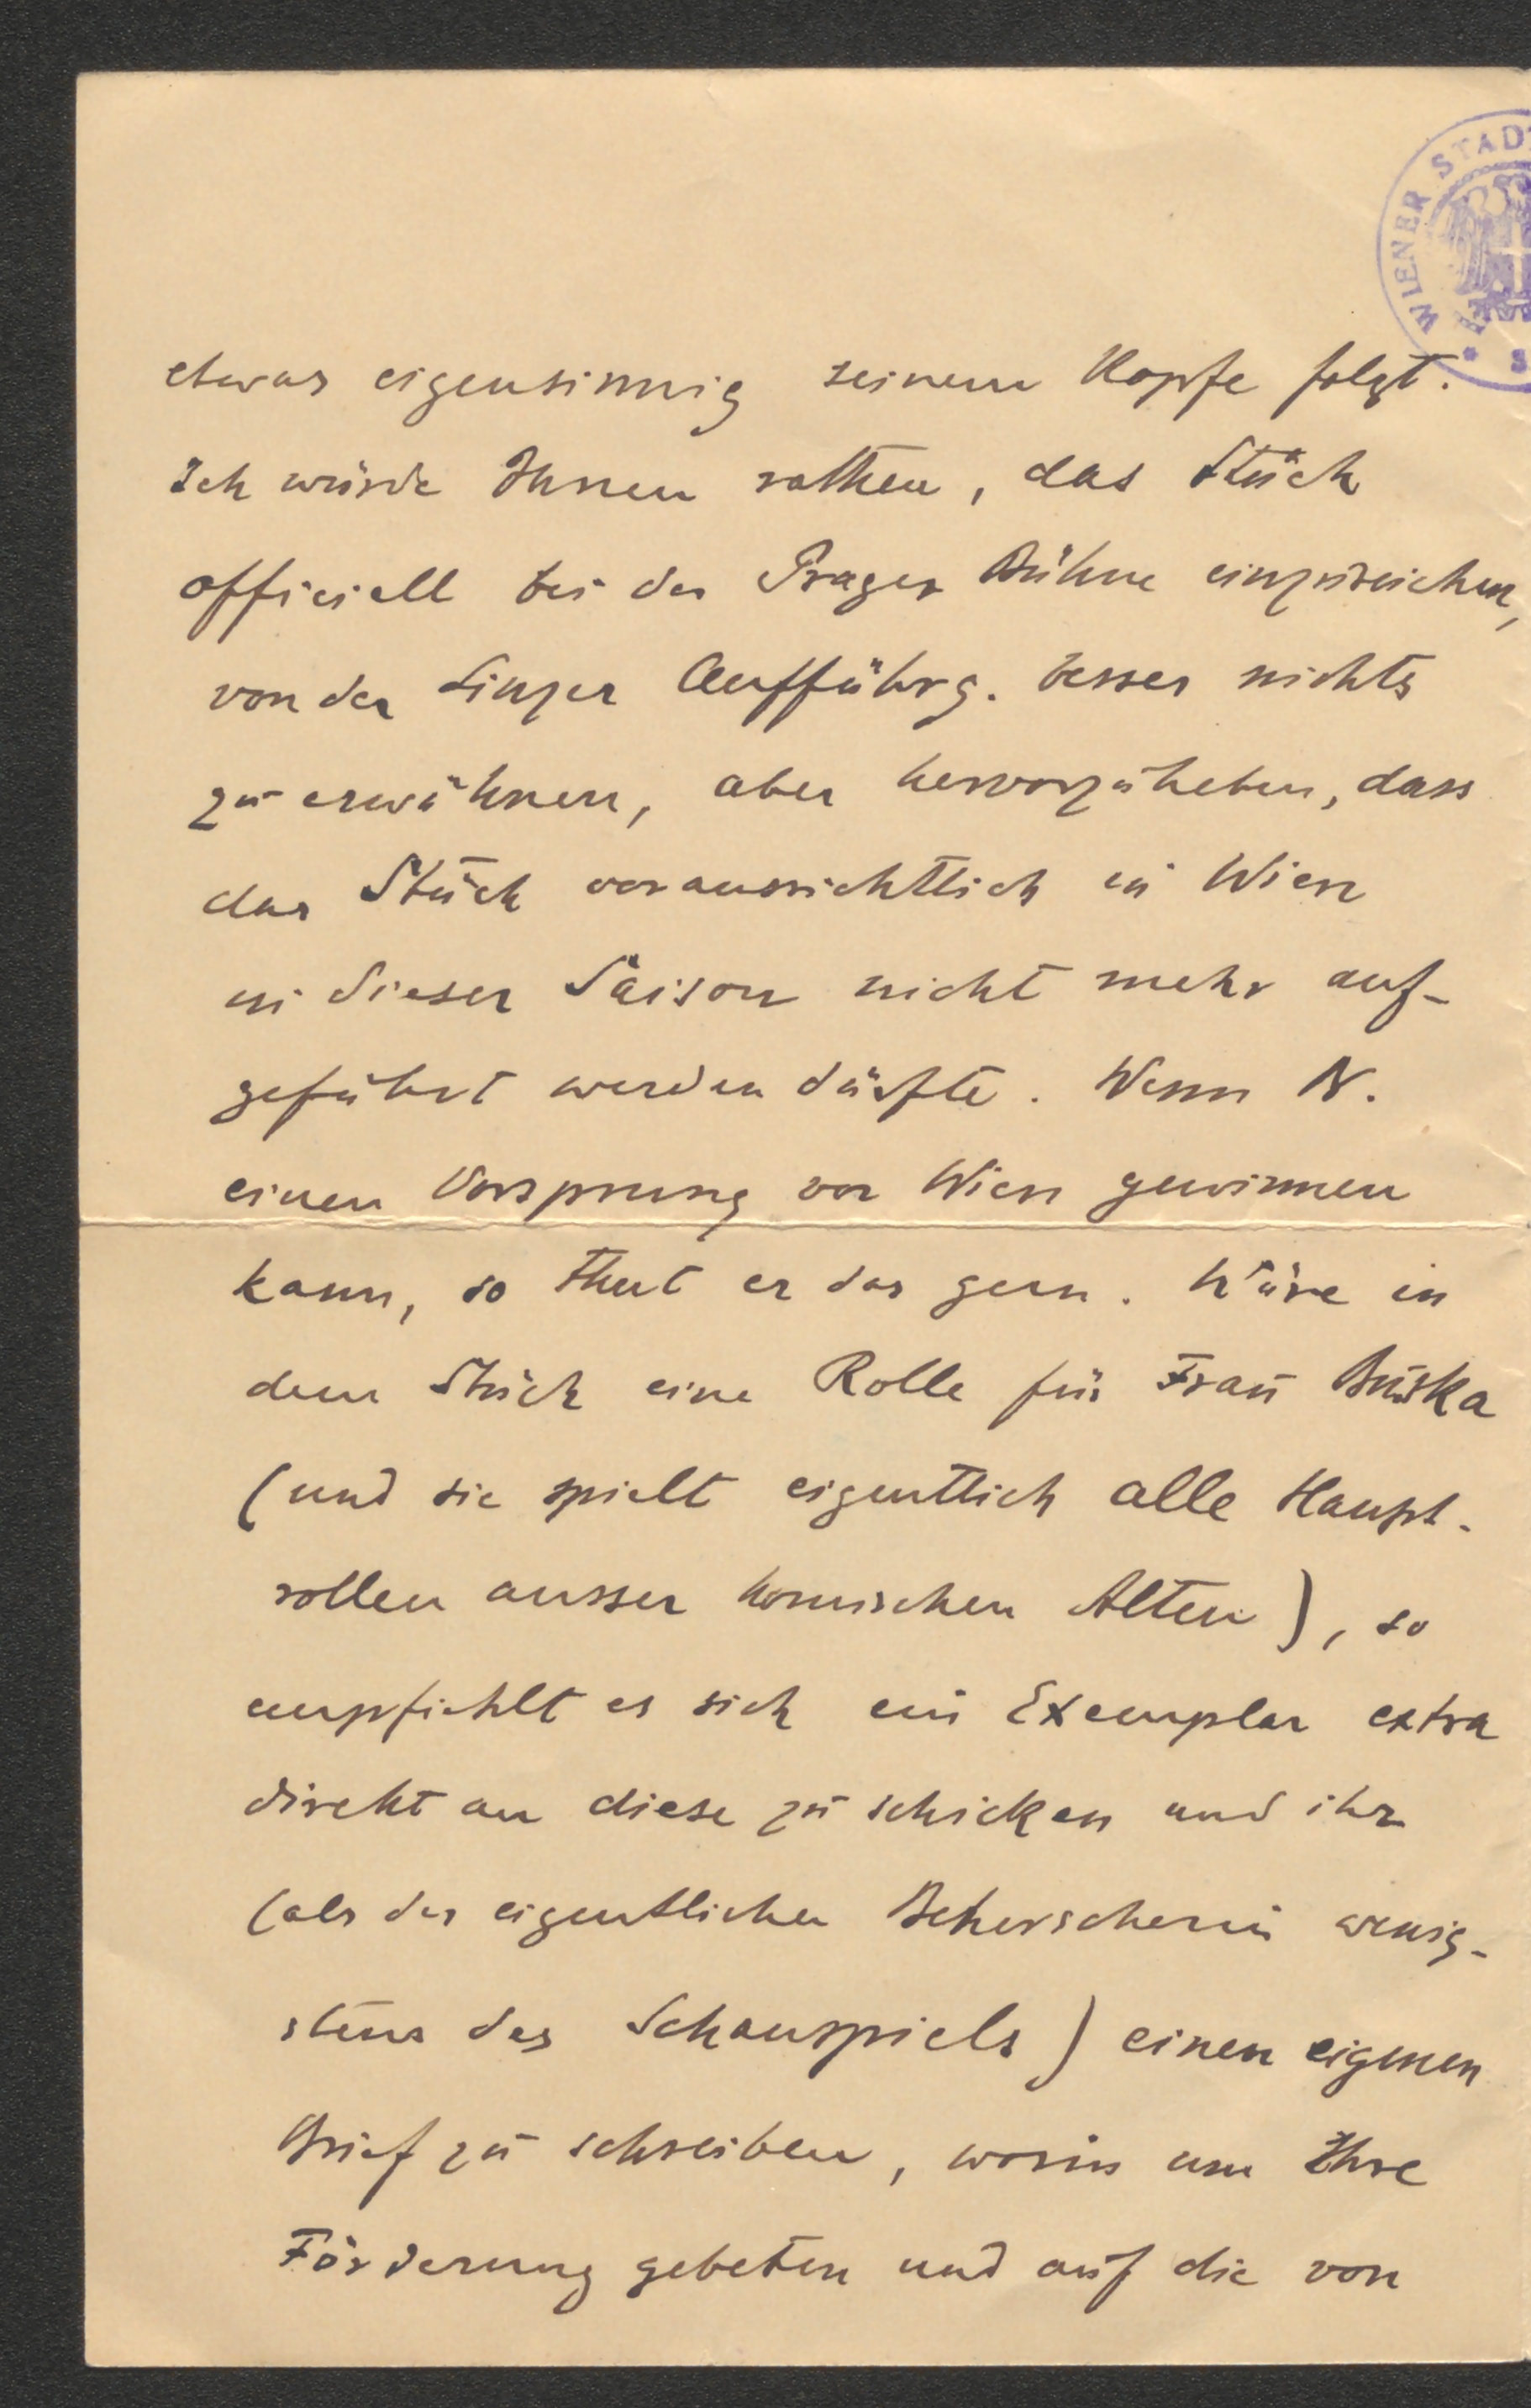 WIENER STADT
etwas eigensinnig seinem Kopfe folgt.
Ich würde Ihnen rathen, das Stück
officiell bei der Prager Bühne einzureichen,
von der Linzer Aufführg. besser nichts
zu erwähnen, aber hervorzuheben, dass
das Stück voraussichtlich in Wien
in dieser Saison nicht mehr auf-
geführt werden dürfte. Wenn N.
einen Vorsprung vor Wien gewinnen
kann, so thut er das gern. Wäre in
dem Stück eine Rolle für Frau Buska
(und sie spielt eigentlich alle Haupt-
rollen ausser komischen Alten), so
empfiehlt es sich ein Exemplar extra
direkt an diese zu schicken und ihr
(als der eigentlichen Beherscherin wenig-
stens des Schauspiels) einen eigenen
Brief zu schreiben, worin um Ihre
Förderung gebeten und auf die von